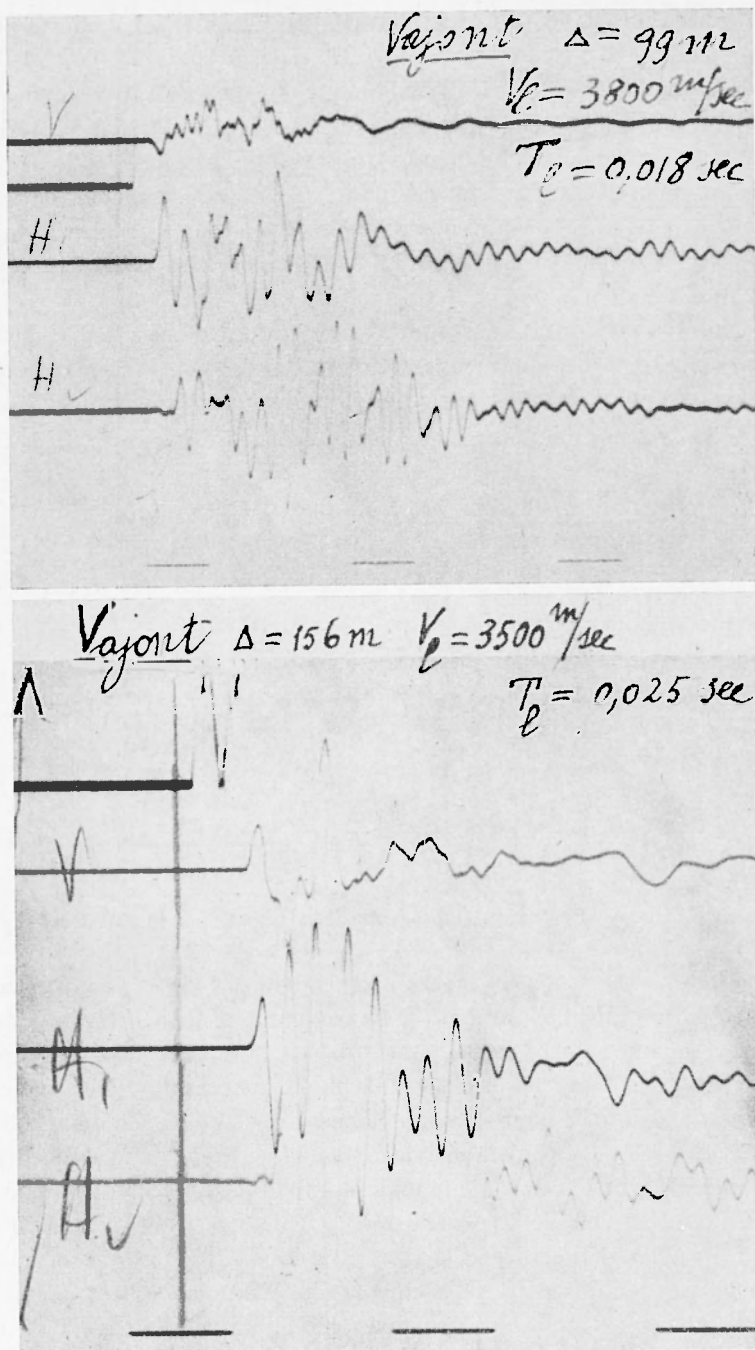 Vajont Δ = 99 m
Vl = 3800 m/sec
V
Tl = 0,018 sec
H1
H
Vajont Δ = 156 m Vl = 3500 m/sec
Tl = 0,025 sec
V
H1
H